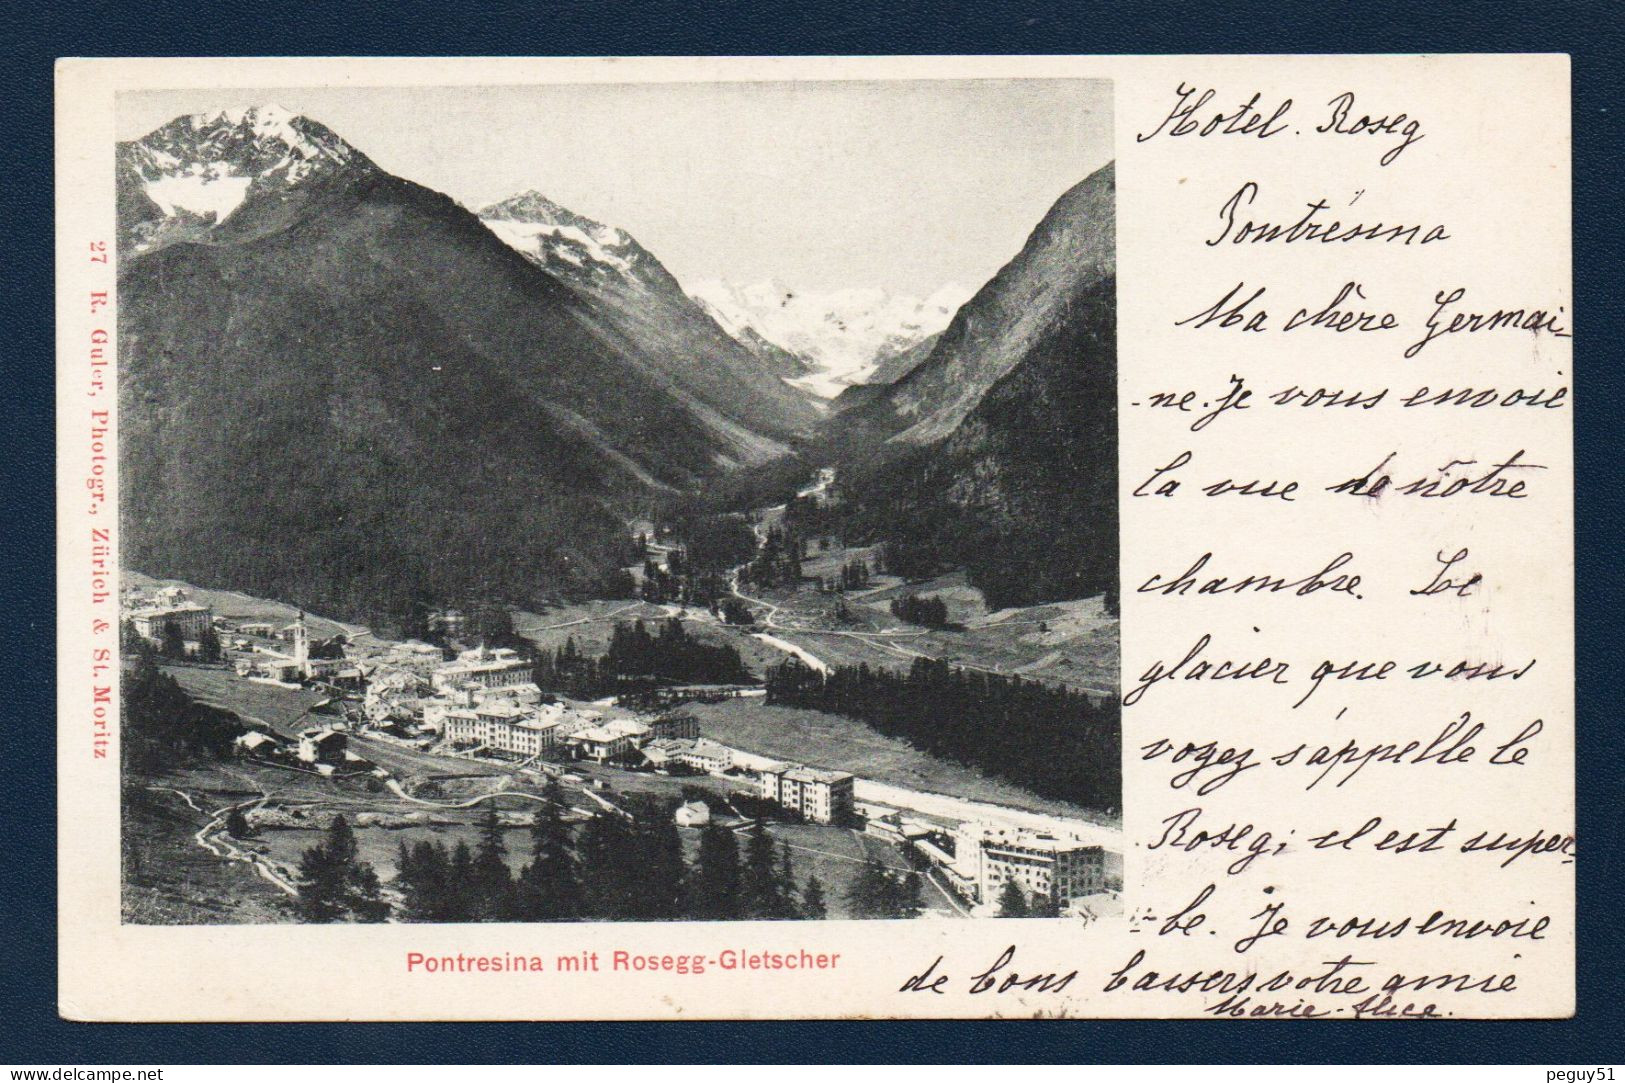 27 R. Guler, Photogr., Zürich & St. Moritz
Pontresina mit Rosegg-Gletscher
Hotel. Roseg
Pontrésina
Ma chère Germai-
-ne. Je vous envoie
la vue de nôtre
chambre. Le
glacier que vous
voyez s'appelle le
Roseg; il est super-
-be. Je vous envoie
de bons baisers votre amie
Marie-Alice.
peguy51
delcampe.net